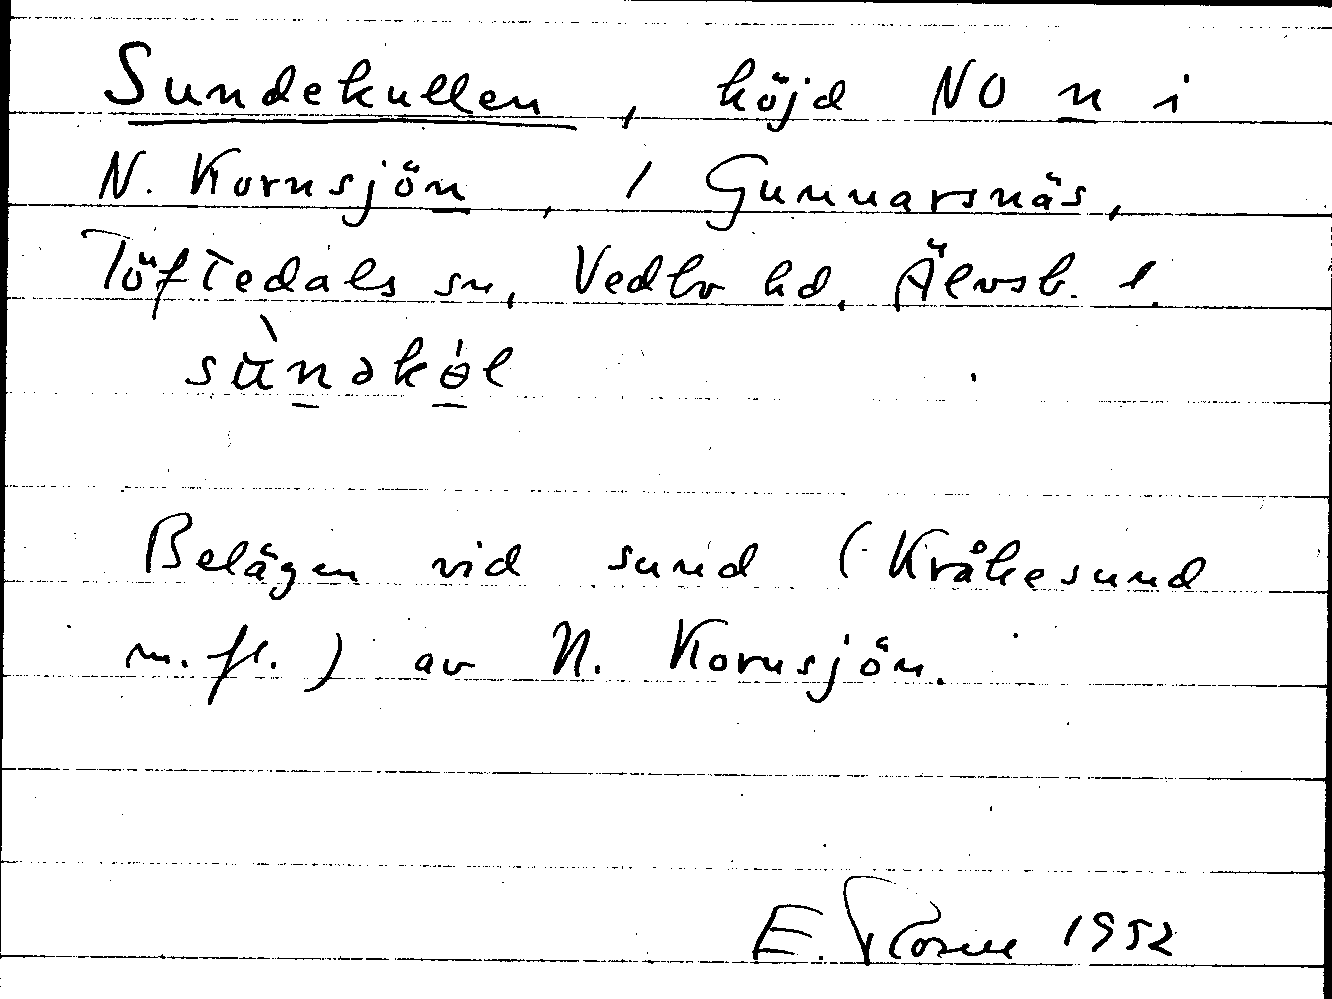 Sundekullen, höjd NO n i
N. Kornsjön, 1 Gunnarsnäs,
Töftedals sn, Vedbo hd. Älvsb. l.
sùnəkɵ́l
Belägen vid sund (Kråkesund
m. fl.) av N. Kornsjön.
E. 1952